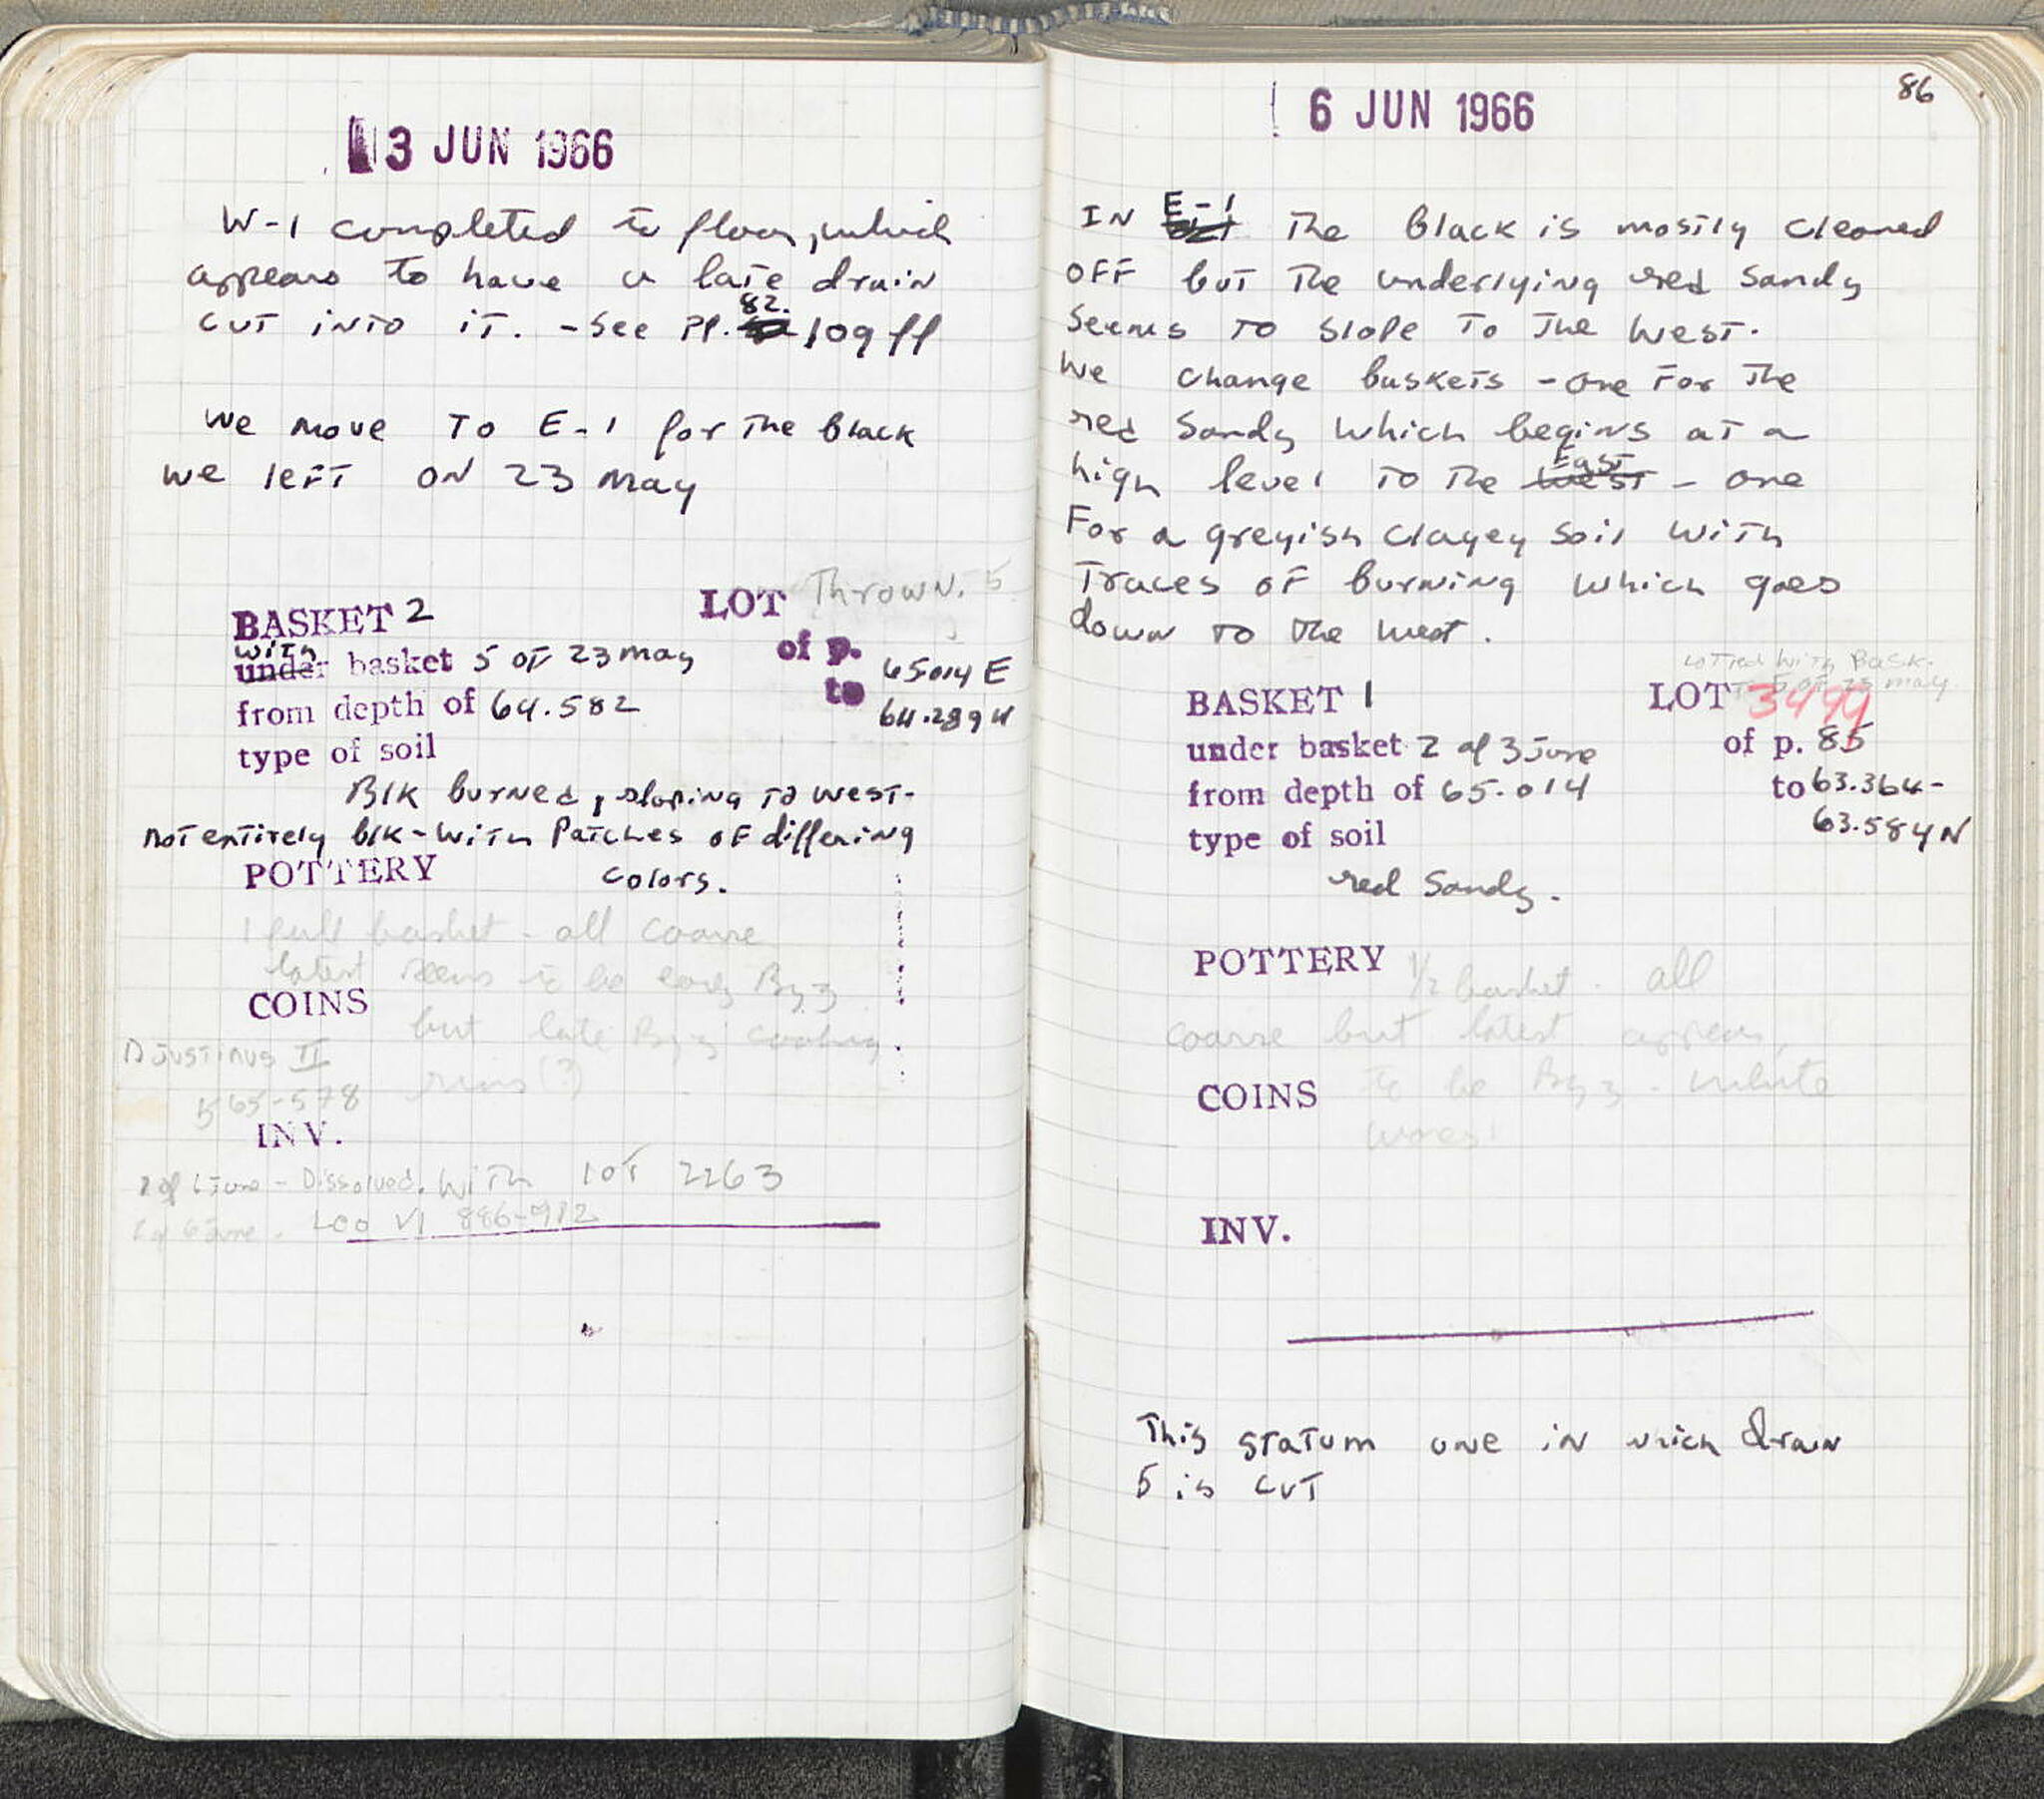 3 JUN 1966
W-1 completed to floor, which
appears to have a late drain
cut into it. - See pp. 82. 109 ff
We move to E-1 for the black
we left on 23 May
BASKET 2 LOT Thrown. 5
with
under basket 5 of 23 may of p. 65.014 E
from depth of 64.582 to 64.289 W
type of soil
Blk burned, sloping to west-
not entirely blk - with patches of differing
colors.
POTTERY
1 full basket - all coarse
latest seems to be early Byz
but late Byz cooking
rims (?)
COINS
Justinus II
565-578
INV.
1 of 1 June - Dissolved. with lot 2263
Leo VI 886-912
86
6 JUN 1966
In E-1 the black is mostly cleaned
off but the underlying red sandy
seems to slope to the west.
We change baskets - one for the
red sandy which begins at a
high level to the west East - one
for a greyish clayey soil with
traces of burning which goes
down to the west.
Lotted with Bask.
5 of 23 may
BASKET 1 LOT 3499
under basket 2 of 3 June of p. 85
from depth of 65.014 to 63.364-
63.584 N
type of soil
red sandy.
POTTERY 1/2 basket - all
coarse but latest appears
to be Byz - white
ware
COINS
INV.
This statum one in which drain
5 is cut